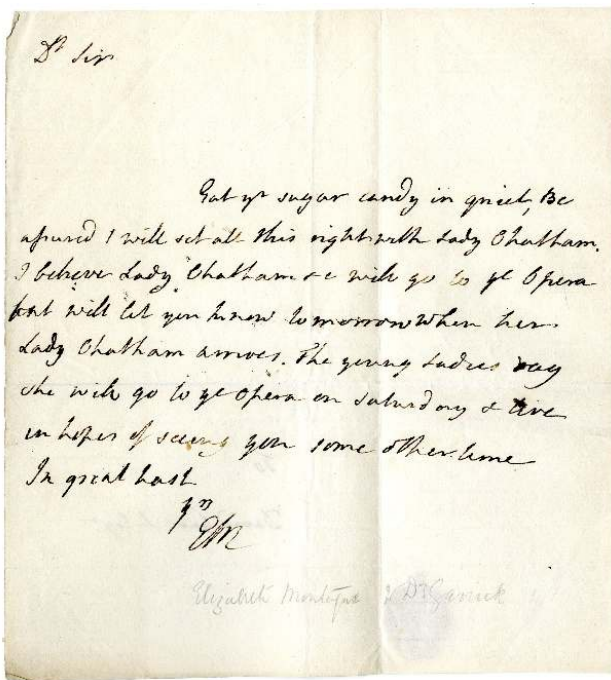 Dr Sir
Eat yr sugar candy in quiet, Be
assured I will set all this right with Lady Chatham.
I believe Lady Chatham &c will go to ye Opera
but will let you know tomorrow when her
Lady Chatham arrives. The young Ladies say
she will go to ye Opera on Saturday & live
in hopes of seeing you some other time
In great hast
yrs
EM
Elizabeth Montague Dr Garrick